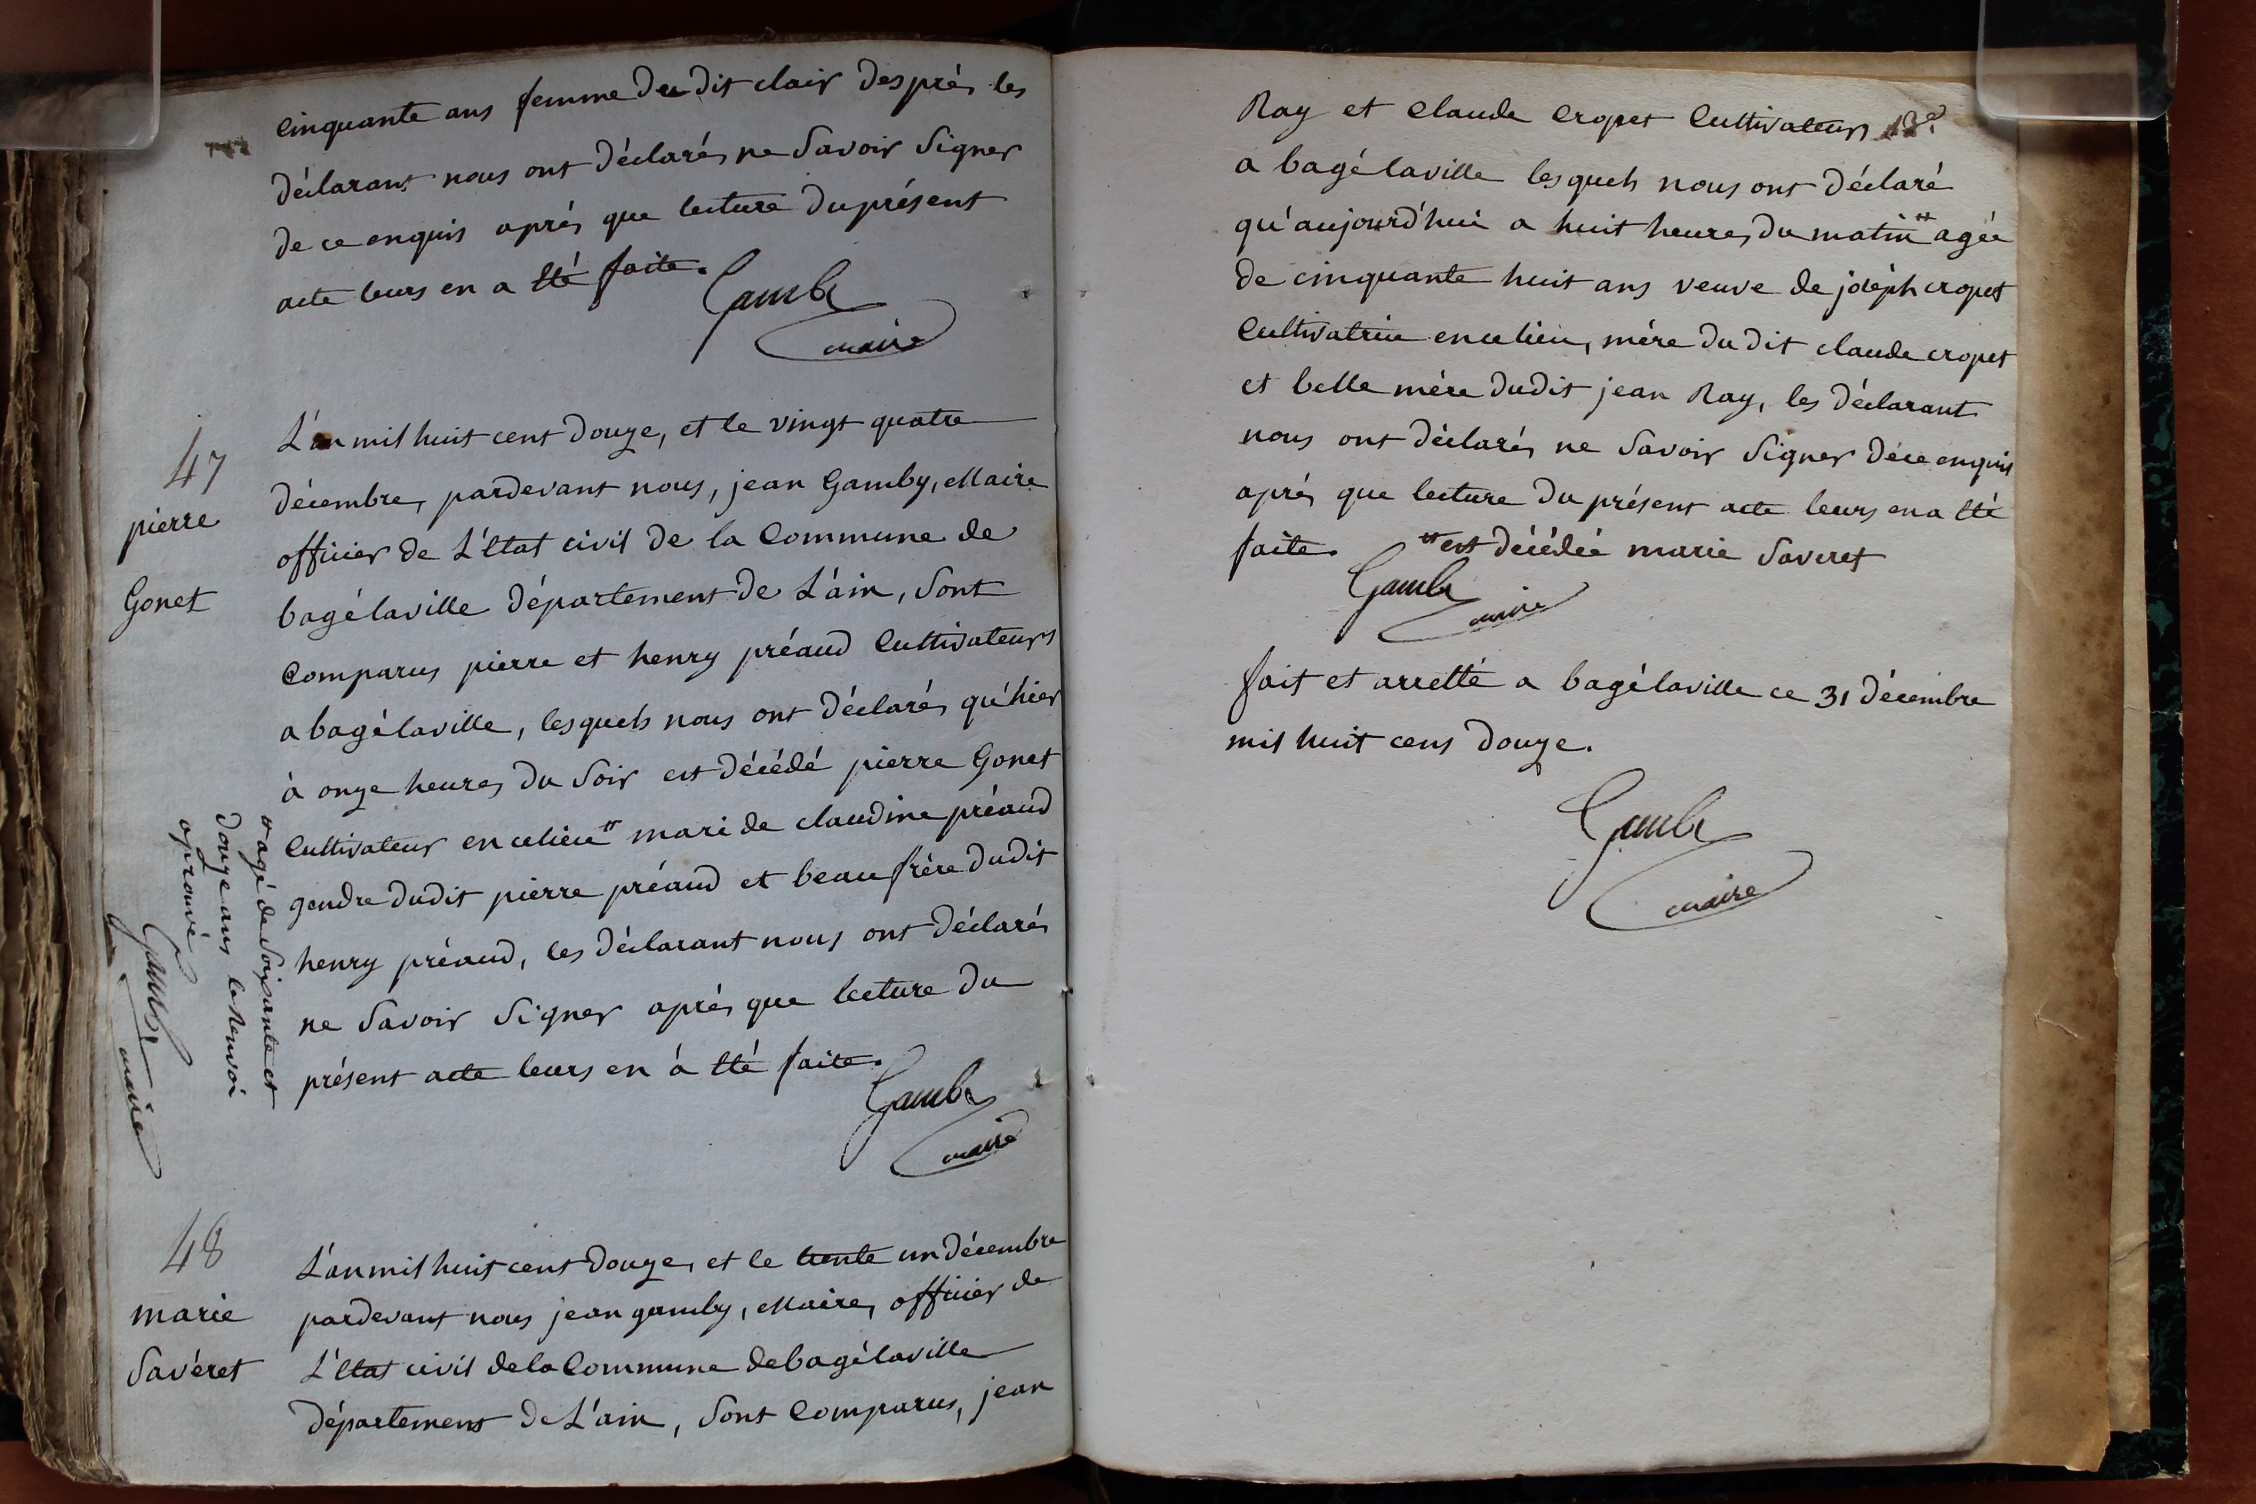 cinquante ans femme du dit clair desprès les
déclarant nous ont déclarés ne Savoir Signer
de ce enquis après que lecture du présent
acte leurs en a été faite.
Gamby
maire
47
pierre
Gonet
L'an mil huit cent douze, et le vingt quatre
décembre, pardevant nous, jean Gamby, Maire
officier de L'état civil de la Commune de
bagélaville département de L'ain, Sont
Comparus pierre et henry préaud Cultivateurs
a bagélaville, lesquels nous ont déclarés qu'hier
à onze heures du Soir est décédé pierre Gonet
Cultivateur en celieu # mari de claudine préaud
gendre dudit pierre préaud et beau frère dudit
henry préaud, les déclarant nous ont déclarés
ne Savoir Signer après que lecture du
présent acte leurs en à été faite.
Gamby
maire
# agé de Soixante et
douze ans le renvoi
aprouvé
Gamby
maire
48
marie
Savéret
L'an mil huit cent douze, et le trente un décembre
pardevant nous jean gamby, Maire, officier de
L'état civil de la Commune de bagélaville
département de L'ain, Sont Comparus, jean
Ray et Claude Cropet Cultivateurs
a bagélaville lesquels nous ont déclaré
qu'aujourd'hui a huit heures du matin # agée
de cinquante huit ans veuve de joseph cropet
Cultivatrice en celieu, mére du dit claude cropet
et belle mère dudit jean Ray, les déclarant
nous ont déclarés ne Savoir Signer déce enquis
après que lecture du présent acte leurs en a été
faite. # est décédée marie Saveret
Gamby
maire
fait et arretté a bagélaville ce 31 décembre
mil huit cens douze.
Gamby
maire